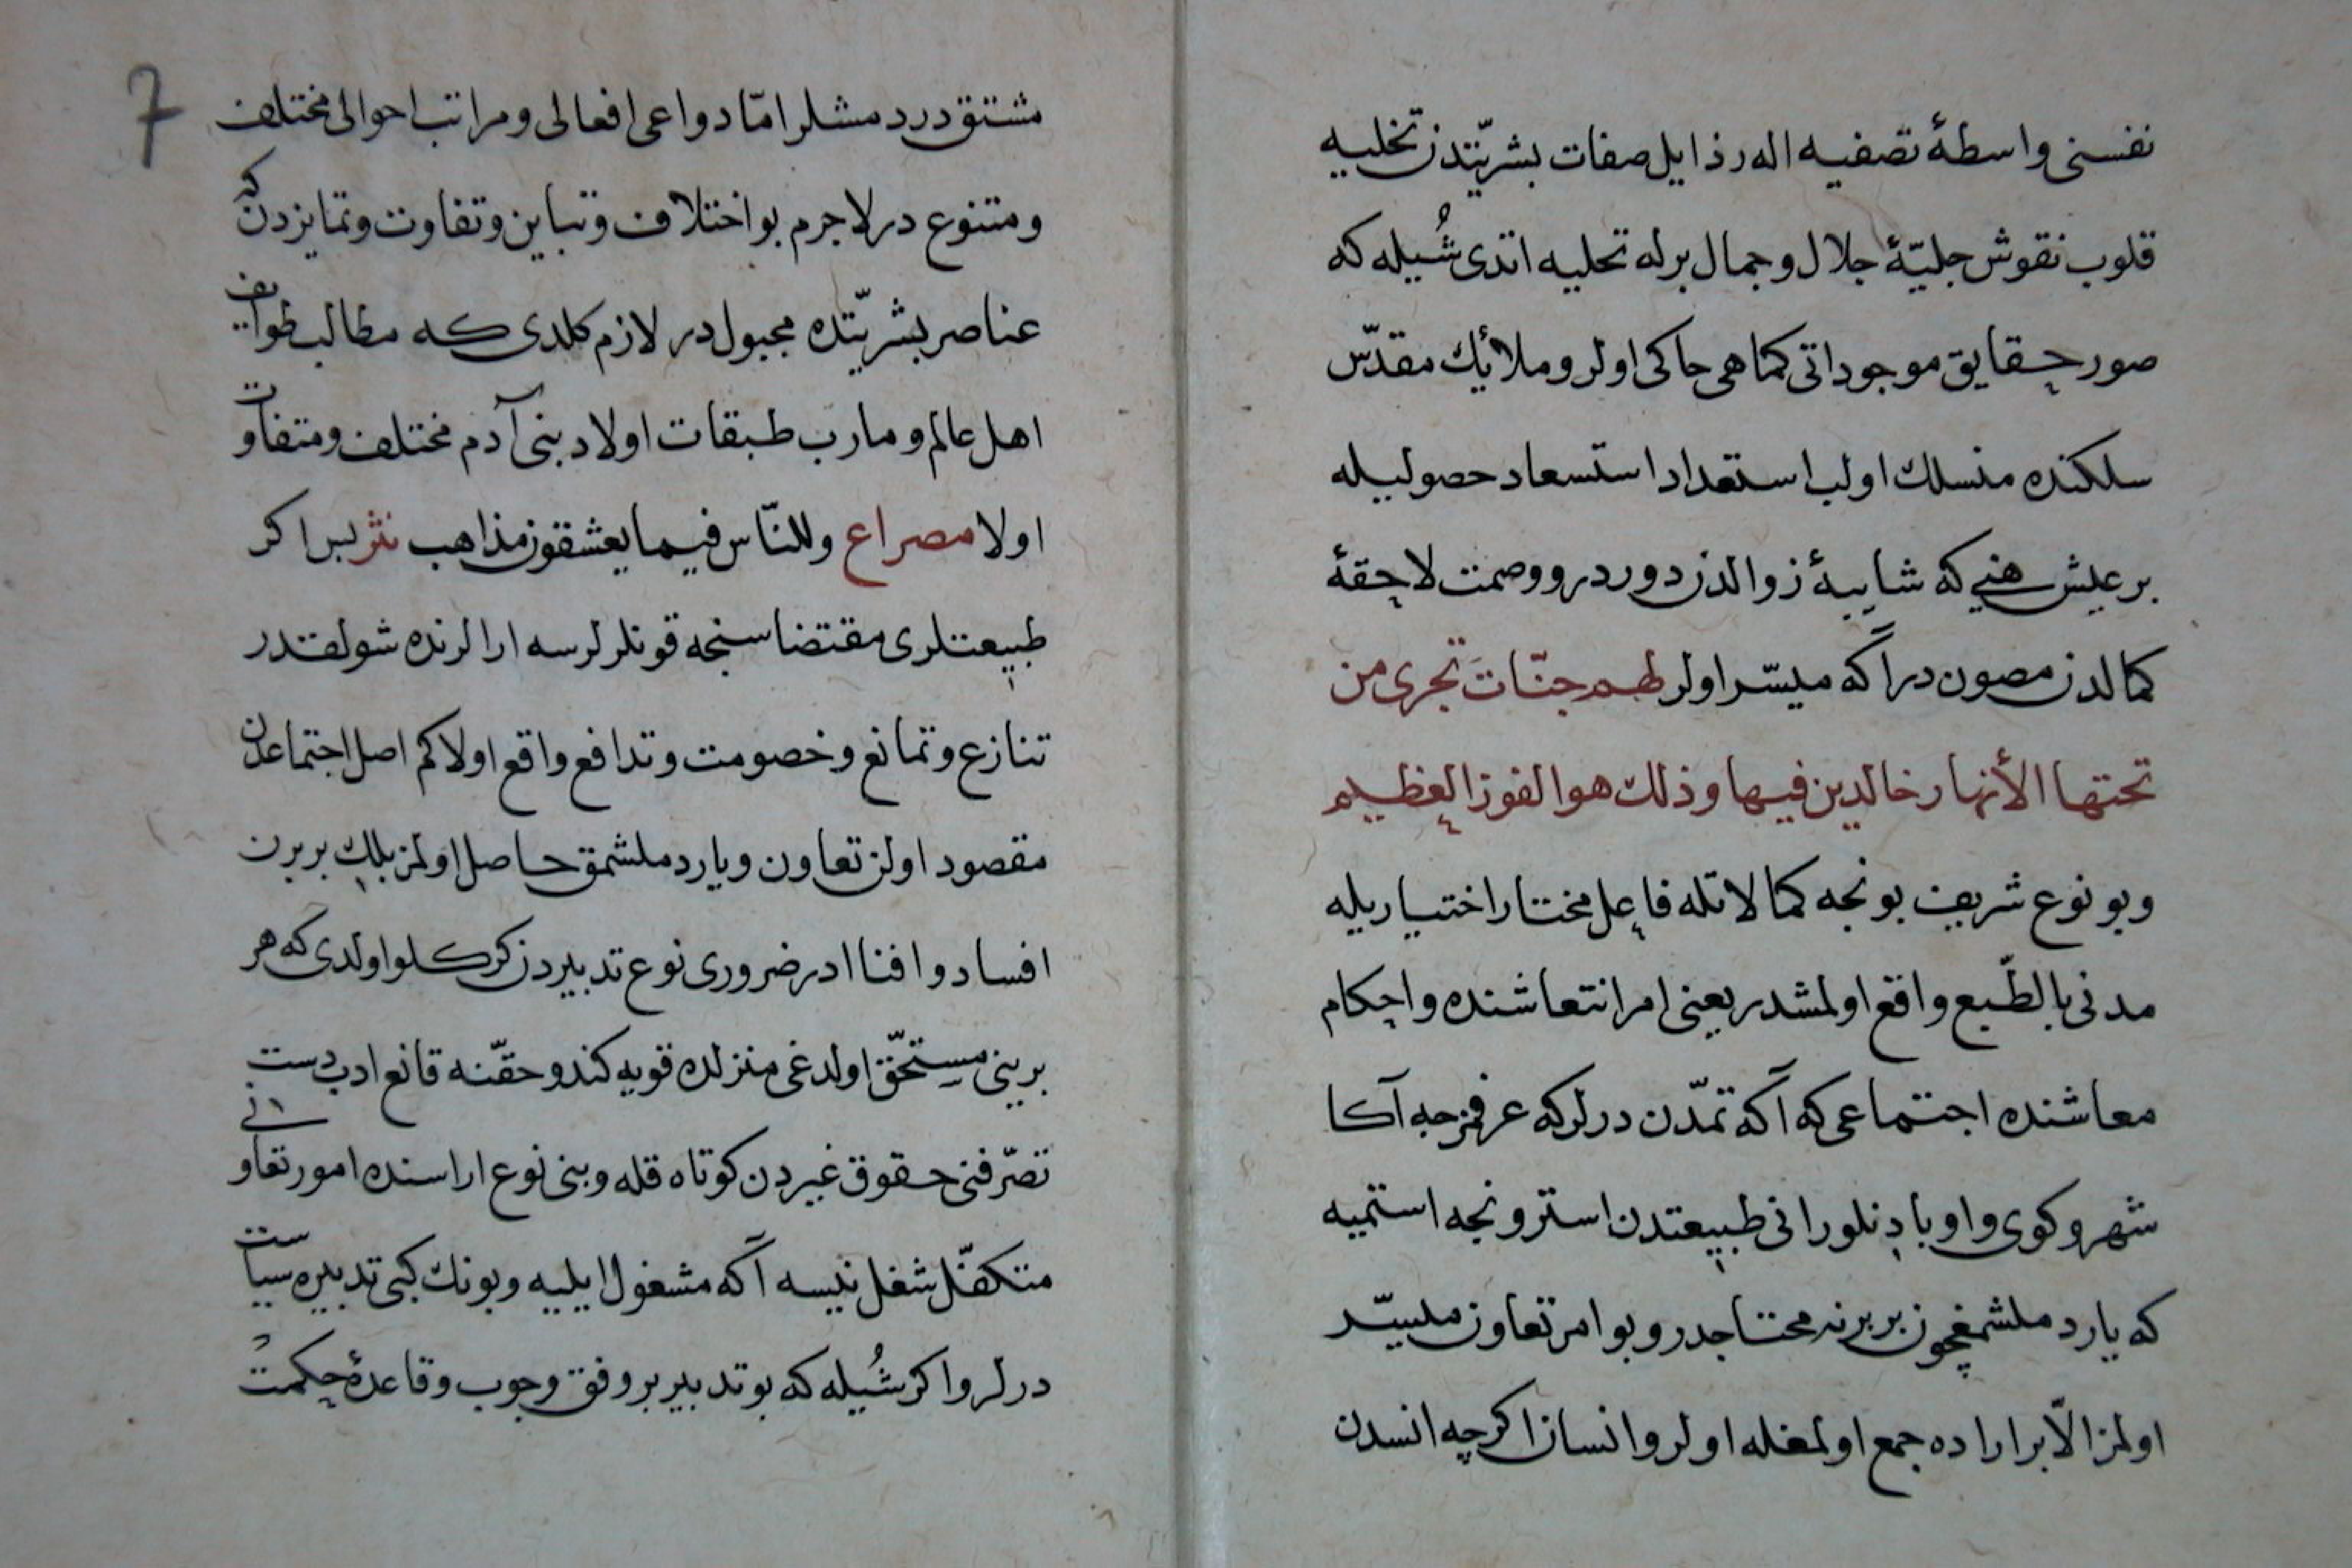 نفسنی واسطۀ تصفیه اله رذایل صفات بشریّتدن تخلیه
قلوب نقوش جلیّۀ جلال وجمال برله تحلیه اتدی شُیله که
صور حقایق موجوداتی کما هی حاکی اولر وملائك مقدّس
سلکنده منسلك اولب استعداد استسعاد حصولیله
بر عیش هنی که شایبۀ زوالدن دوردر ووصمت لاحقۀ
کمالدن مصون در آکه میسّر اولر لهم جنّات تجری من
تحتها الأنهار خالدین فیها وذلك هو الفوز العظیم
وبو نوع شریف بونجه کمالاتله فاعل مختار اختیاریله
مدنی بالطّبع واقع اولمشدر یعنی امر انتعاشنده واحکام
معاشنده اجتماعی که آکه تمدّن درلر که عرفمزجه آکا
شهر وکوی واوبا دنلور انی طبیعتدن استر ونجه استمیه
که یاردملشمغچون بربرنه محتاجدر وبو امر تعاون میسّر
اولمز الّا بر اراده جمع اولمغله اولر وانسان اکرچه انسدن
7
مشتق دردمشلر امّا دواعی افعالی ومراتب احوالی مختلف
ومتنوع در لاجرم بو اختلاف وتباین وتفاوت وتمایزدن که
عناصر بشریّتده مجبول در لازم کلدی که مطالب طوایف
اهل عالم ومارب طبقات اولاد بنی آدم مختلف ومتفاوت
اولا مصراع وللنّاس فیما یعشقون مذاهب نثر پس اکر
طبیعتلری مقتضاسنجه قونلرلرسه ارالرنده شولقدر
تنازع وتمانع وخصومت وتدافع واقع اولا کم اصل اجتماعدن
مقصود اولن تعاون ویاردملشمق حاصل اولمز بلك بربرن
افساد وافنا ادر ضروری نوع تدبیردن کرکلو اولدی که هر
برینی مستحقّ اولدغی منزلده قویه کندو حقّنه قانع ادب دست
تصرّفنی حقوق غیردن کوتاه قله وبنی نوع اراسنده امور تعاونی
متکفّل شغل نیسه آکه مشغول ایلیه وبونك کبی تدبیره سیاست
درلر واکر شُیله که بو تدبیر بر وفق وجوب وقاعدۀ حکمت